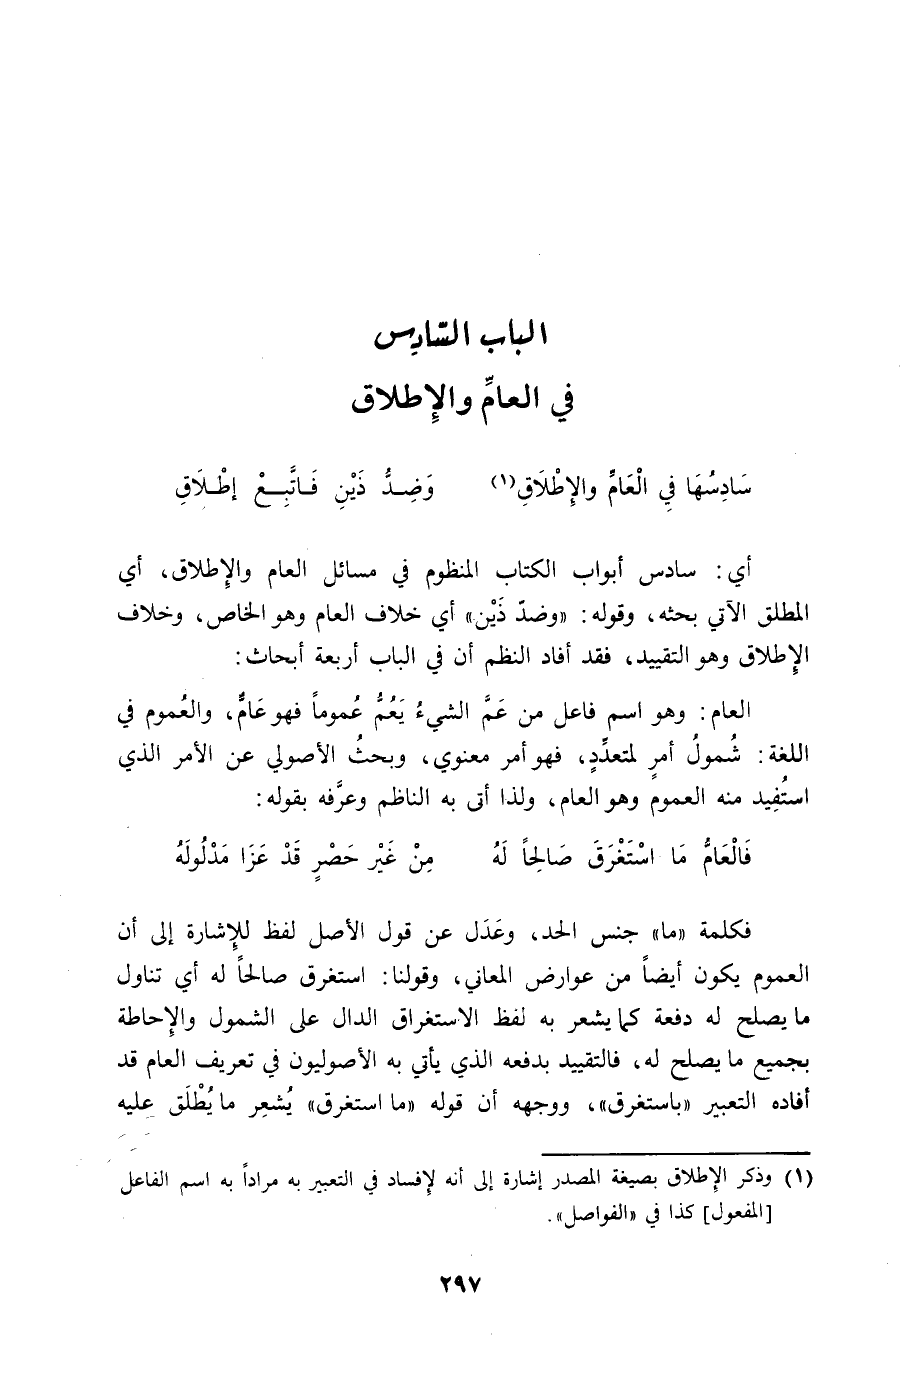 الباب السّادِس
في العامِّ والإِطلاق
سَادِسُهَا فِي الْعَامِّ والإِطْلَاقِ(١) وَضِـدُّ ذَيْنِ فَـاتَّبِـعْ إِطْـلَاقِ
أي: سادس أبواب الكتاب المنظوم في مسائل العام والإِطلاق، أي
المطلق الآتي بحثه، وقوله: «وضدّ ذَيْن» أي خلاف العام وهو الخاص، وخلاف
الإِطلاق وهو التقييد، فقد أفاد النظم أن في الباب أربعة أبحاث:
العام: وهو اسم فاعل من عَمَّ الشيءُ يَعُمُّ عُموماً فهو عَامٌّ، والعُموم في
اللغة: شُمولُ أمرٍ لمتعدِّدٍ، فهو أمر معنوي، وبحثُ الأصولي عن الأمر الذي
استُفِيد منه العموم وهو العام، ولذا أتى به الناظم وعرَّفه بقوله:
فَالْعَامُّ مَا اسْتَغْرَقَ صَالِحاً لَهُ مِنْ غَيْرِ حَصْرٍ قَدْ عَزَا مَدْلُولَهُ
فكلمة «ما» جنس الحد، وعَدَل عن قول الأصل لفظ للإِشارة إلى أن
العموم يكون أيضاً من عوارض المعاني، وقولنا: استغرق صالحاً له أي تناول
ما يصلح له دفعة كما يشعر به لفظ الاستغراق الدال على الشمول والإِحاطة
بجميع ما يصلح له، فالتقييد بدفعه الذي يأتي به الأصوليون في تعريف العام قد
أفاده التعبير «باستغرق»، ووجهه أن قوله «ما استغرق» يُشعِر ما يُطْلَق عليه
(١) وذكر الإِطلاق بصيغة المصدر إشارة إلى أنه لإِفساد في التعبير به مراداً به اسم الفاعل
[المفعول] كذا في «الفواصل».
٢٩٧